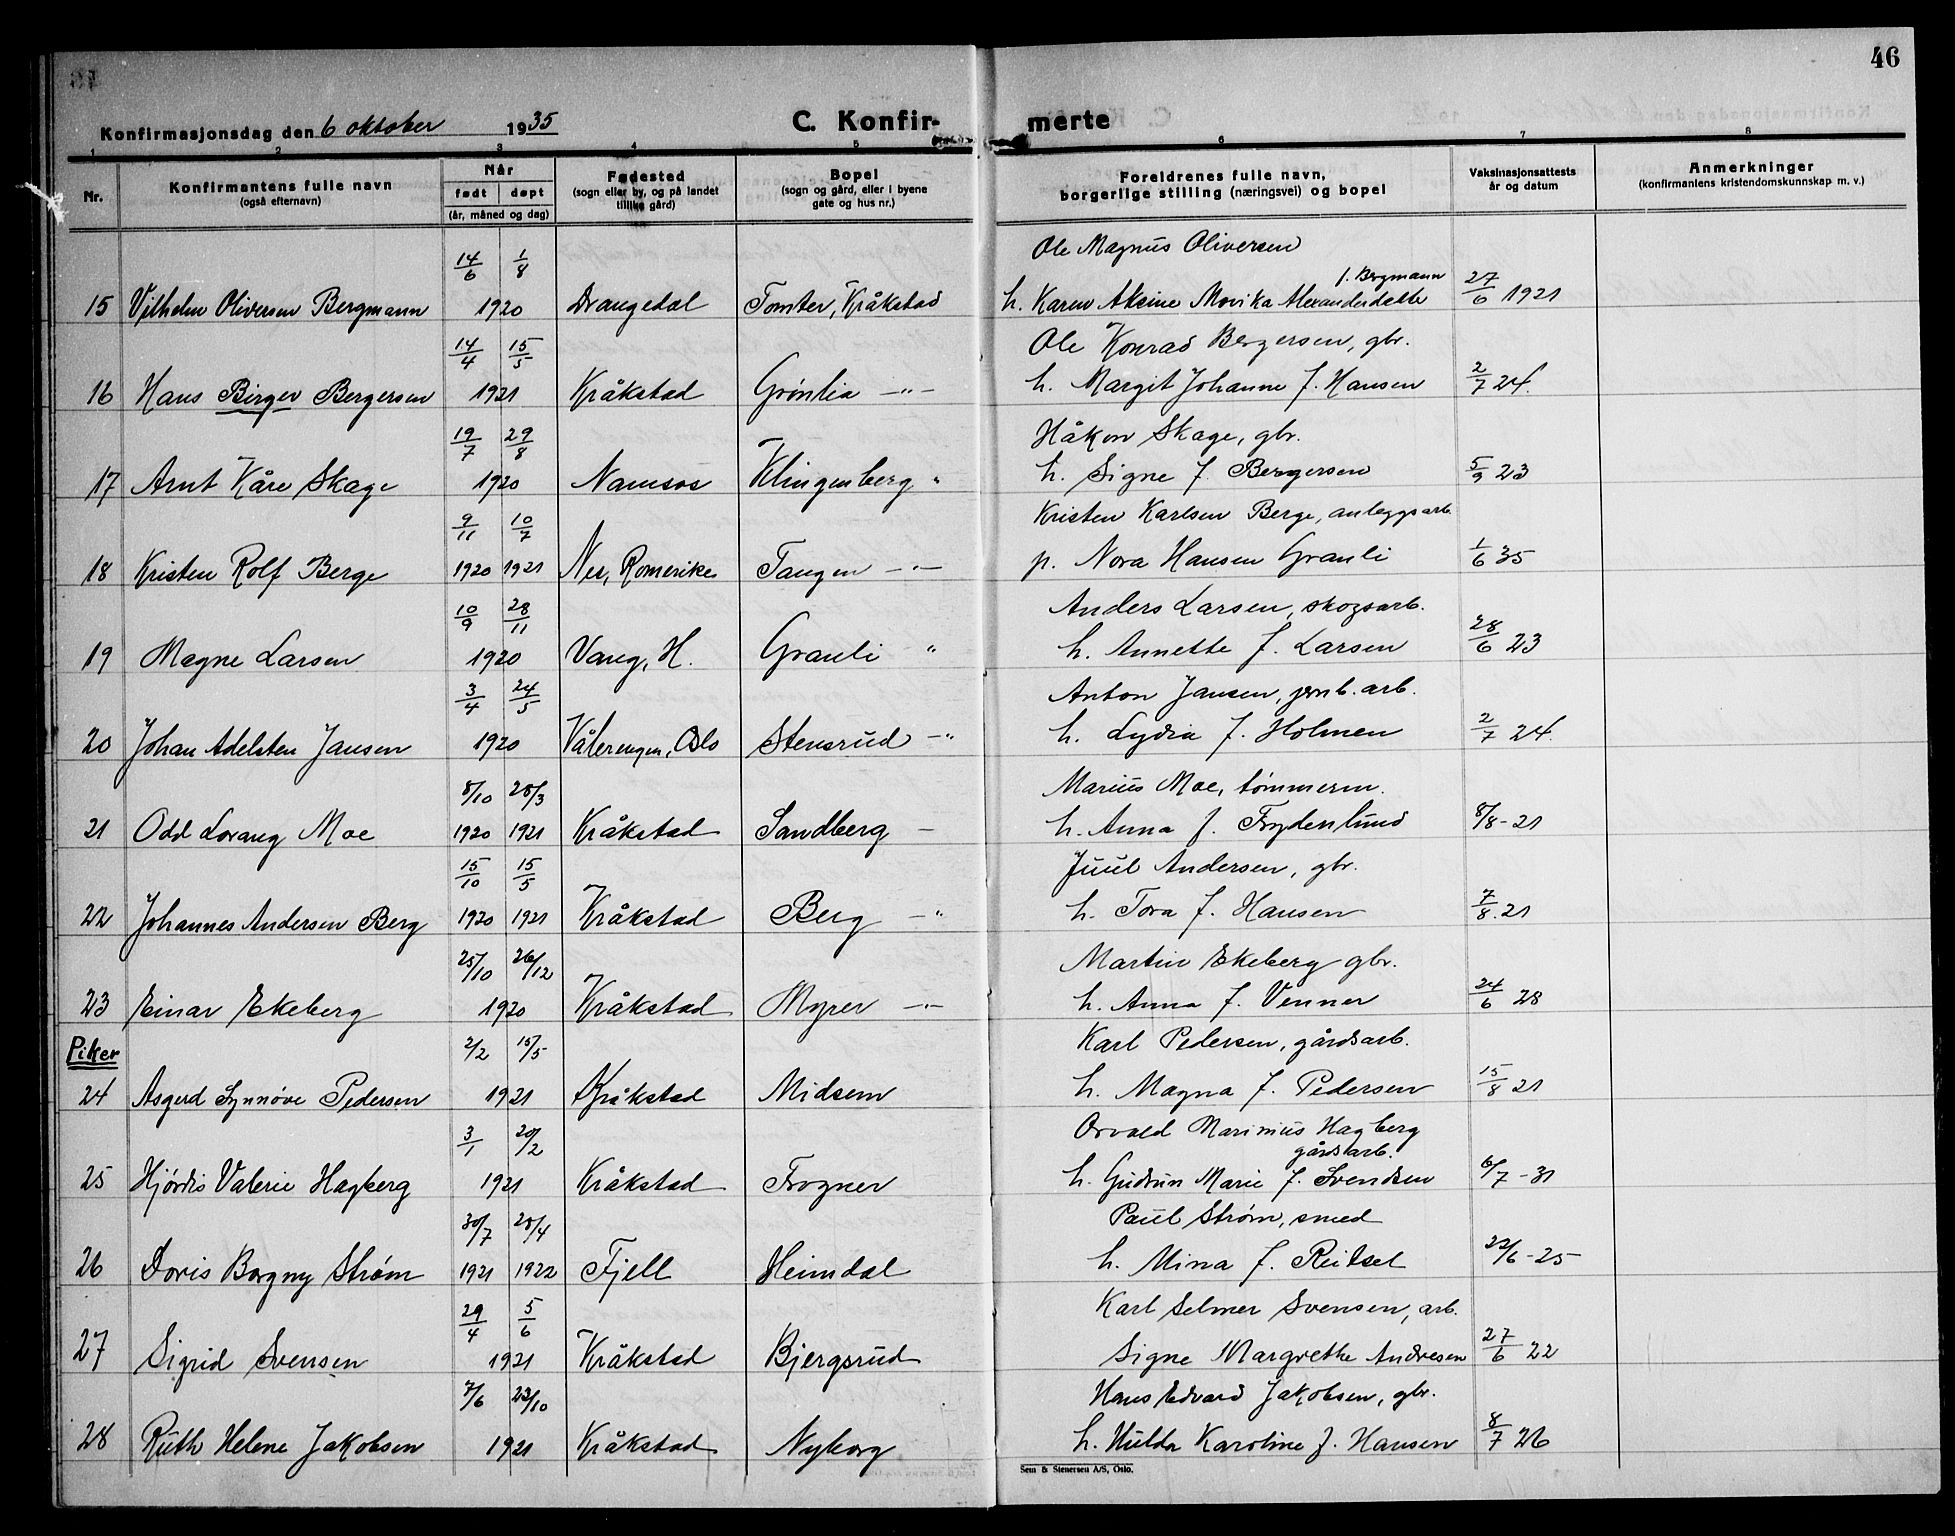 46
Konfirmasjonsdag den 6 oktober 1935 C. Konfir- merte
1 2 3 4 5 6 7 8
Nr. Konfirmantens fulle navn (også efternavn) Når født døpt (år, måned og dag) Fødested (sogn eller by, og på landet tillike gård) Bopel (sogn og gård, eller i byene gate og hus nr.) Foreldrenes fulle navn, borgerlige stilling (næringsvei) og bopel Vaksinasjonsattests år og datum Anmerkninger (konfirmantens kristendomskunnskap m. v.)
14/6 1/8 Ole Magnus Oliversen
f. Bergmann
15 Vilhelm Oliversen Bergmann 1920 Drangedal Tomter, Kråkstad h. Karen Aksine Movika Alexandersdatte 27/6 1921
14/4 15/5 Ole Konrad Bergersen, gbr.
16 Hans Birger Bergersen 1921 Kråkstad Grønlia -"- h. Margit Johanne f. Hansen 2/7 24.
19/7 29/8 Håkon Skage, gbr.
17 Arnt Kåre Skage 1920 Namsos Klingenberg " h. Signe f. Bergersen 5/9 23
9/11 10/7 Kristen Karlsen Berge, anleggsarb.
18 Kristen Rolf Berge 1920 1921 Nes, Romerike Tangen -"- p. Nora Hansen Granli 1/6 35
10/9 28/11 Anders Larsen, skogsarb.
19 Magne Larsen 1920 Vang, H. Granli " h. Annette f. Larsen 28/6 23
3/4 24/5 Anton Jansen, jernb. arb.
20 Johan Adelsten Jansen 1920 Vålerengen, Oslo Stensrud -"- h. Lydia f. Holmen 2/7 24.
8/10 28/3 Marius Moe, tømmerm.
21 Odd Lorang Moe 1920 1921 Kråkstad Sandberg - h. Anna f. Frydenlund 8/8-21
15/10 15/5 Juul Andersen, gbr.
22 Johannes Andersen Berg 1920 1921 Kråkstad Berg -"- h. Tora f. Hansen 7/8.21
25/10 26/12 Martin Ekeberg gbr.
23 Einar Ekeberg 1920 Kråkstad Myrer -"- h. Anna f. Venner 24/6 28
Piker 2/2 15/5 Karl Pedersen, gårdsarb.
24 Asgerd Synnøve Pedersen 1921 Kråkstad Midsem h. Magna f. Pedersen 15/8 21
3/1 20/2 Osvald Marinius Hagberg
gårdsarb.
25 Hjørdis Valerie Hagberg 1921 Kråkstad Frogner h. Gudrun Marie f. Svendsen 6/7-31
30/7 28/4 Paul Strøm, smed
26 Doris Borgny Strøm 1921 1922 Fjell Heimdal h. Mina f. Reitsel 22/6-25
29/4 5/6 Karl Selmer Svensen, arb.
27 Sigrid Svensen 1921 Kråkstad Bjergsrud Signe Margrethe Andresen 27/6 22
7/6 23/10 Hans Edvard Jakobsen, gbr.
28 Ruth Helene Jakobsen 1921 Kråkstad Nyborg h. Hulda Karoline f. Hansen 8/7 26
Sem & Stenersen A/S, Oslo.